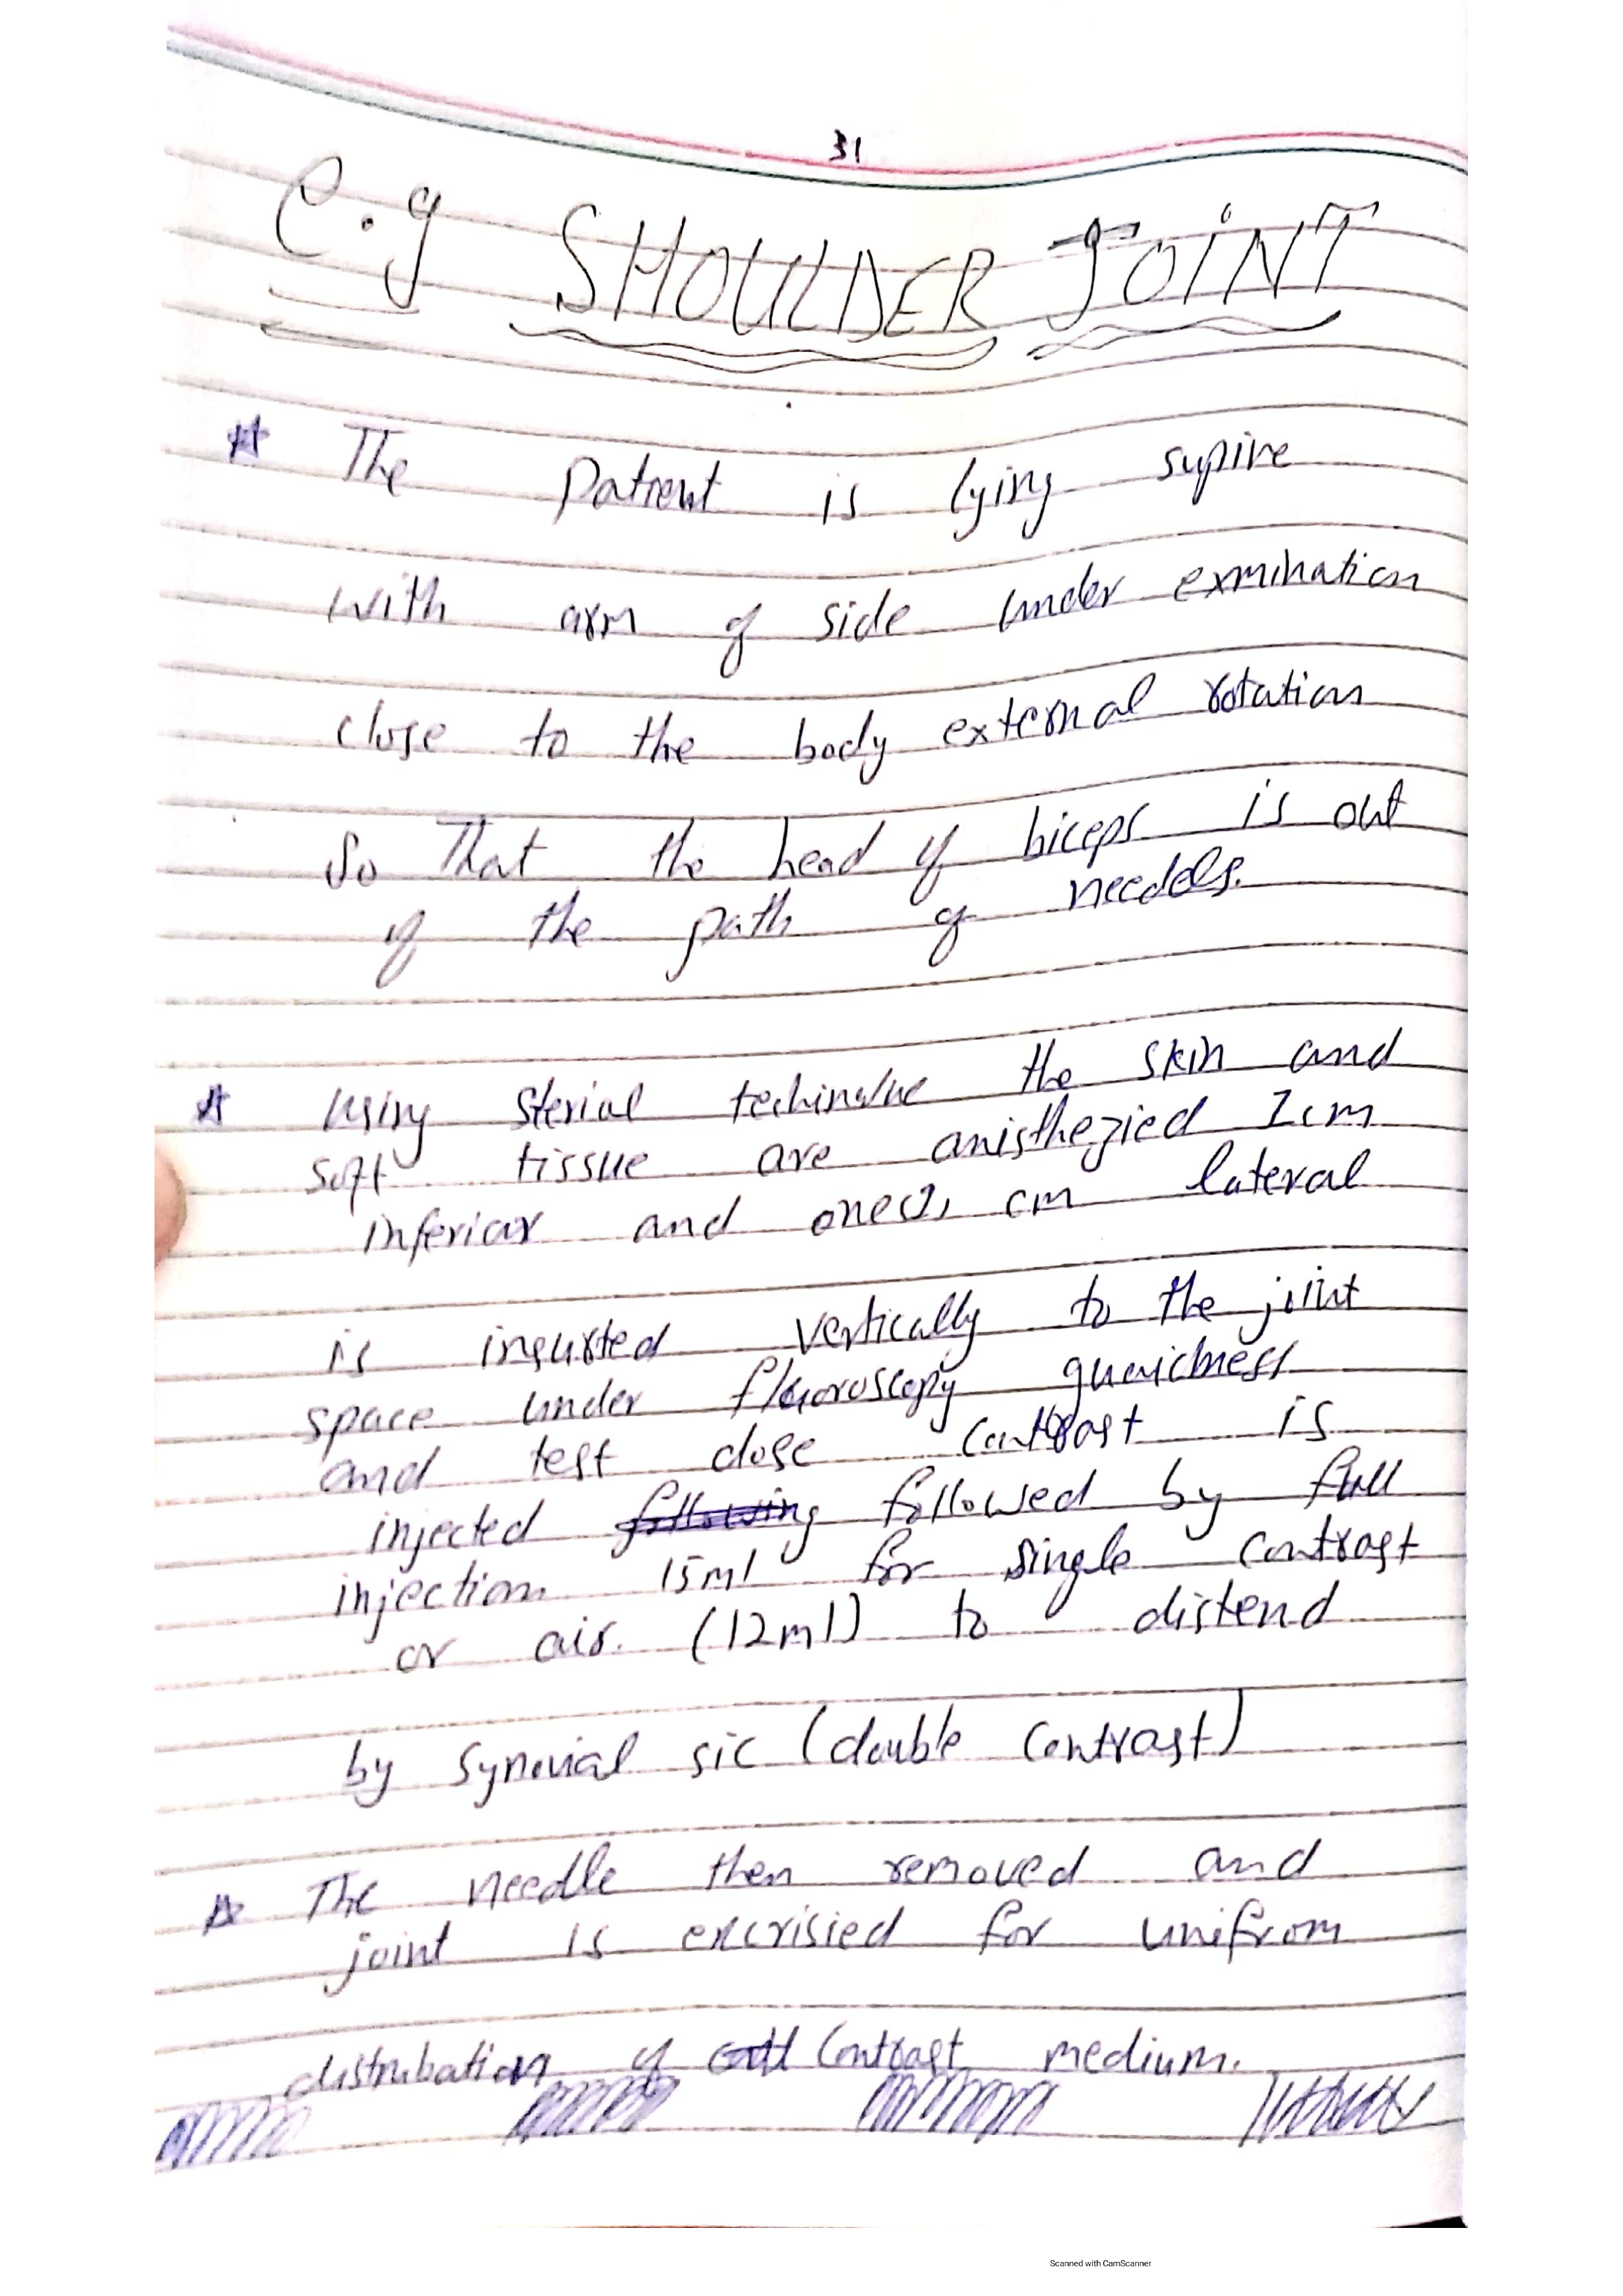 31
e.g SHOULDER JOINT
The Patient is lying supine
with arm of side under exmination
close to the body external rotation
So That the head of biceps is out
of the path of needels.
using sterial techinalue the skin and
soft tissue are anisthezied 1cm
inferior and one cm lateral
is insurted vertically to the joint
space under fluoroscopy
and test dose contrast is
injected following followed by full
injection 15ml for single contrast
or air. (12ml) to distend
by synovial sic (double contrast)
The needle then removed and
joint is excrisied for unifrom
distrubation of contrast medium.
Scanned with CamScanner